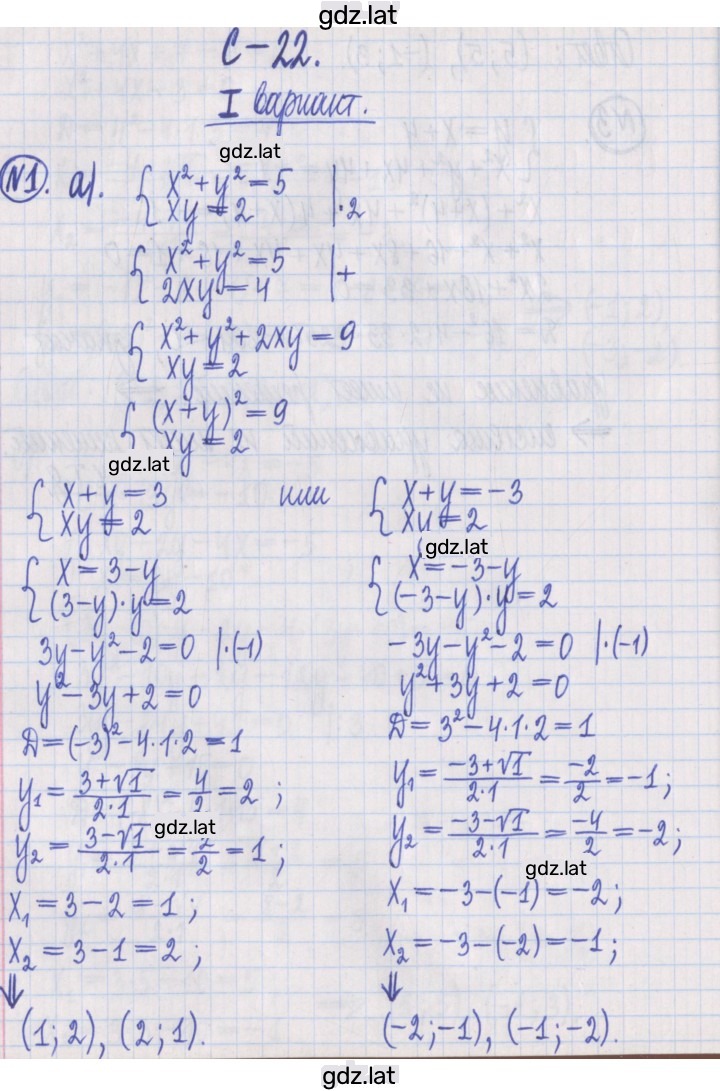 gdz.lat
С-22.
I вариант.
gdz.lat
№1. а). { x² + y² = 5
xy = 2 | ·2
{ x² + y² = 5
2xy = 4 | +
{ x² + y² + 2xy = 9
xy = 2
{ (x + y)² = 9
xy = 2
gdz.lat
{ x + y = 3
xy = 2
{ x = 3 - y
(3 - y)·y = 2
3y - y² - 2 = 0 | ·(-1)
y² - 3y + 2 = 0
D = (-3)² - 4·1·2 = 1
y₁ = (3 + √1)/(2·1) = 4/2 = 2 ;
y₂ = (3 - √1)/(2·1) = 2/2 = 1 ;
gdz.lat
x₁ = 3 - 2 = 1 ;
x₂ = 3 - 1 = 2 ;
⇓
(1; 2), (2; 1).
или
{ x + y = -3
xy = 2
gdz.lat
{ x = -3 - y
(-3 - y)·y = 2
-3y - y² - 2 = 0 | ·(-1)
y² + 3y + 2 = 0
D = 3² - 4·1·2 = 1
y₁ = (-3 + √1)/(2·1) = -2/2 = -1 ;
y₂ = (-3 - √1)/(2·1) = -4/2 = -2 ;
gdz.lat
x₁ = -3 - (-1) = -2 ;
x₂ = -3 - (-2) = -1 ;
⇓
(-2; -1), (-1; -2).
gdz.lat